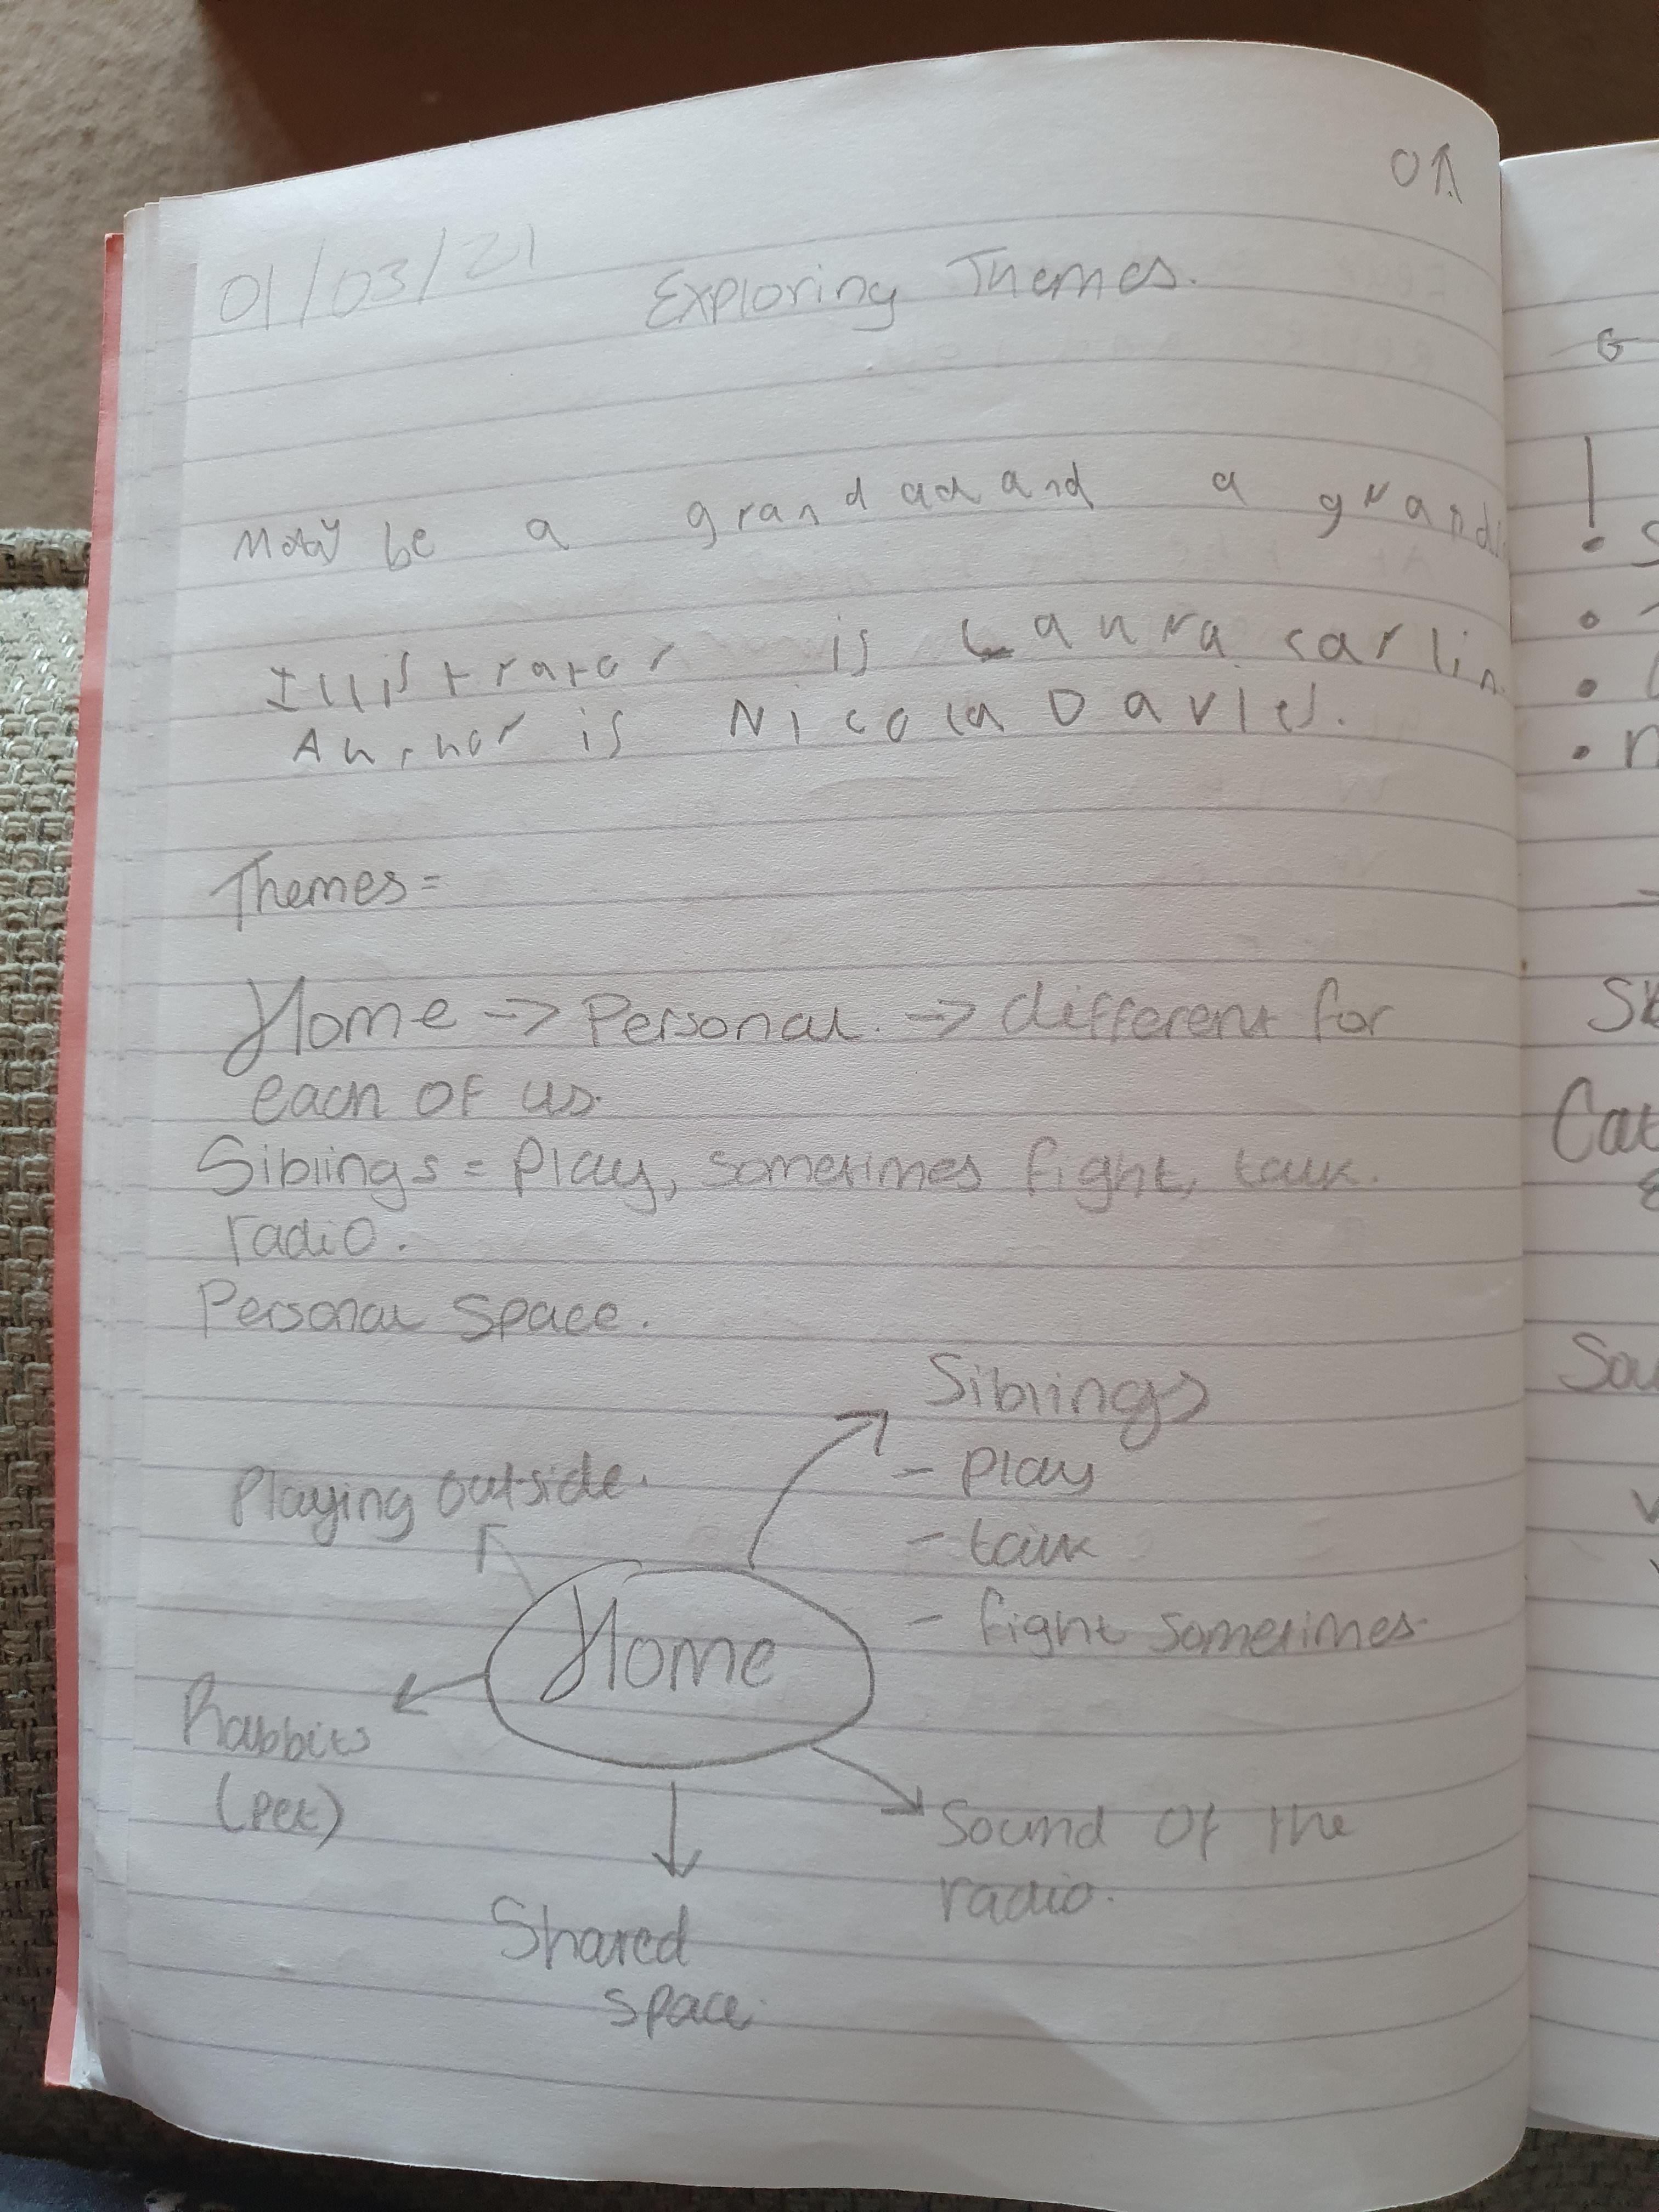 01/03/21
Exploring Themes.
may be a grandad and a
Illistrator is Laura carlin
Author is Nicola Davies.
Themes =
Home -> Personal. -> different for
each of us.
Siblings = Play, sometimes fight, talk.
radio.
Personal space.
Siblings
- play
- talk
- fight sometimes.
Playing outside.
Home
Rabbits
(pet)
Sound of the
radio.
Shared
space.